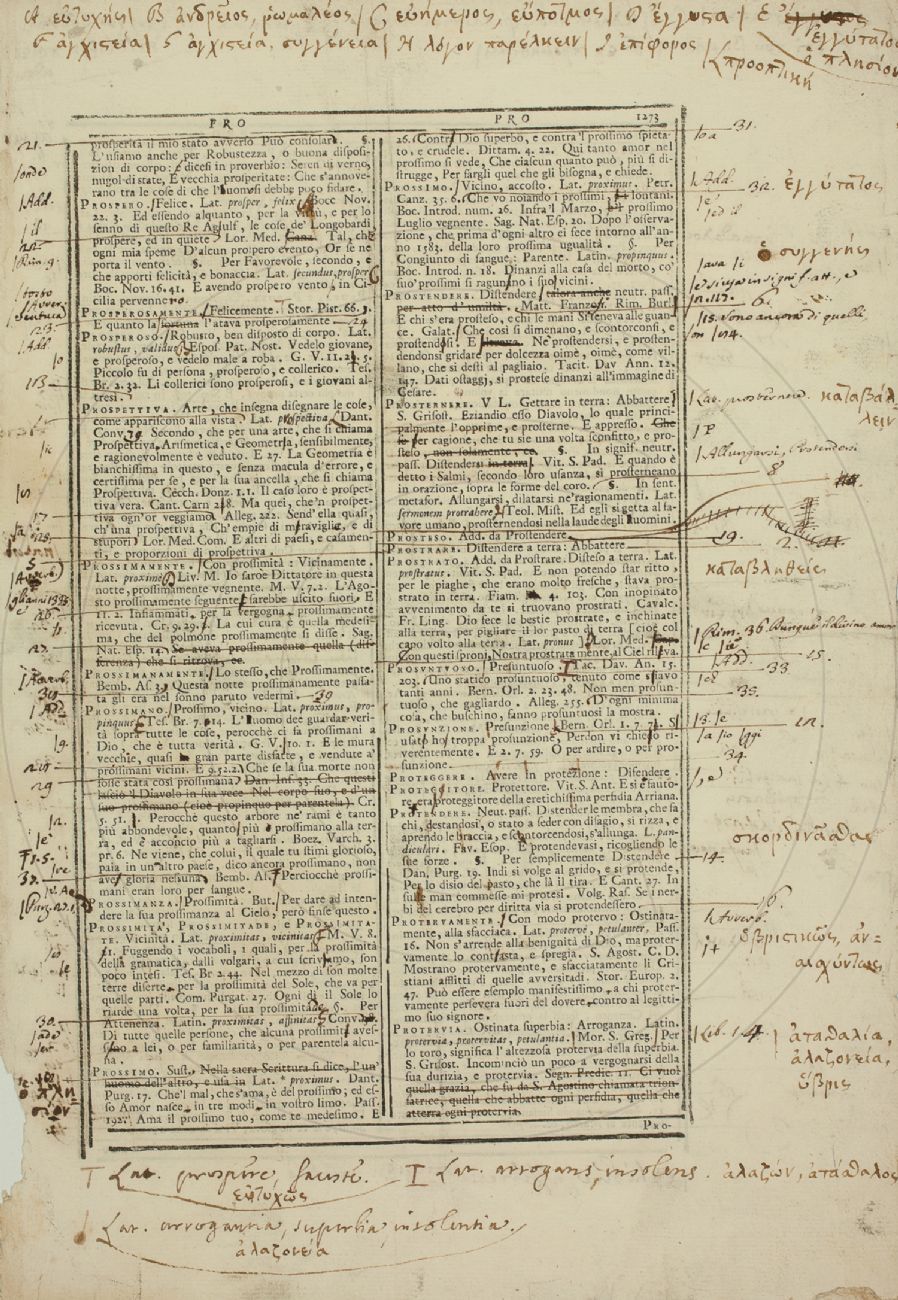 A εὐτυχής| B ἀνδρεῖος, ῥωμαλέος| C εὐήμερος, εὔποτμος| D ἔγγυτα| E
ἐγγύτατος
ἀγχιστεία| G ἀγχιστεία, συγγένεια| H λόγον παρέλκειν| I ἐπίφορος
ὁ πλησίον
προοπτική
PRO PRO 1273
prosperità il mio stato avverso Può consolar. §.
L'usiamo anche per Robustezza, o buona disposi-
zion di corpo: E dicesi in proverbio: Seren di verno,
nugol di state, E vecchia prosperitate: Che s'annove-
rano tra le cose di che l'uomo si debbe poco fidare.
PROSPERO. Felice. Lat. prosper, felix. Bocc. Nov.
22. 3. Ed essendo alquanto, per la virtù, e per lo
senno di questo Re Agilulf, le cose de' Longobardi
prospere, ed in quiete. Lor. Med. Canz. Tal, che
ogni mia speme D'alcun prospero evento, Or se ne
porta il vento. §. Per Favorevole, secondo, e
che apporti felicità, e bonaccia. Lat. secundus, prosper.
Boc. Nov. 16. 41. E avendo prospero vento, in Ci-
cilia pervennero.
PROSPEROSAMENTE. Felicemente. Stor. Pist. 66.
E quanto la fortuna l'atava prosperosamente. 24
PROSPEROSO. Robusto, ben disposto di corpo. Lat.
robustus, validus. Espos. Pat. Nost. Vedelo giovane,
e prosperoso, e vedelo male a roba. G. V. 11. 2. 5.
Piccolo fu di persona, prosperoso, e collerico. Tes.
Br. 2. 32. Li collerici sono prosperosi, e i giovani al-
tresì.
PROSPETTIVA. Arte, che insegna disegnare le cose,
come appariscono alla vista. Lat. prospectiva. Dant.
Conv. 79. Secondo, che per una arte, che si chiama
Prospettiva, Arismetica, e Geometria, sensibilmente,
e ragionevolmente è veduto. E 27. La Geometria è
bianchissima in questo, e senza macula d'errore, e
certissima per se, e per la sua ancella, che si chiama
Prospettiva. Cecch. Donz. 1. 1. Il caso loro è prospet-
tiva vera. Cant. Carn. 218. Ma quei, che'n prospet-
tiva ogn'or veggiamo. Alleg. 222. Send'ella quasi,
ch'una prospettiva, Ch'empie di maraviglie, e di
stupori. Lor. Med. Com. E altri di paesi, e casamen-
ti, e proporzioni di prospettiva.
PROSSIMAMENTE. Con prossimità: Vicinamente.
Lat. proxime. Liv. M. Io saroe Dittatore in questa
notte, prossimamente vegnente. M. V. 7. 2. L'Ago-
sto prossimamente seguente, sarebbe uscito fuori. E
11. 2. Infiammati, per la vergogna, prossimamente
ricevuta. Cr. 9. 29. 1. La cui cura è quella medesi-
ma, che del polmone prossimamente si disse. Sag.
Nat. Esp. 14. Se aveva prossimamente quella (dif-
ferenza) che si ritrova, ec.
PROSSIMANAMENTE. Lo stesso, che Prossimamente.
Bemb. As. 3. Questa notte prossimanamente passa-
ta gli era nel sonno paruto vedermi. 30
PROSSIMANO. Prossimo, vicino. Lat. proximus, pro-
pinquus. Tes. Br. 7. 14. L'uomo dee guardar veri-
tà sopra tutte le cose, perocchè ci fa prossimani a
Dio, che è tutta verità. G. V. 10. 1. E le mura
vecchie, quasi in gran parte disfatte, e vendute a'
prossimani vicini. E 9. 52. 2. Che se la sua morte non
fosse stata così prossimana. Dan. Inf. 33. Che questi
lasciò il Diavolo in sua vece Nel corpo suo, e d'un
suo prossimano (cioè propinquo per parentela). Cr.
5. 51. 1. Perocchè questo arbore ne' rami è tanto
più abbondevole, quanto più è prossimano alla ter-
ra, ed è acconcio più a tagliarsi. Boez. Varch. 3.
pr. 6. Ne viene, che colui, il quale tu stimi glorioso,
paia in un'altro paese, dico ancora prossimano, non
ave' gloria nessuna. Bemb. As. Perciocchè prossi-
mani eran loro per sangue.
PROSSIMANZA. Prossimità. But. Per dare ad inten-
dere la sua prossimanza al Cielo, però finse questo.
PROSSIMITÀ, PROSSIMITADE, e PROSSIMITA-
TE. Vicinità. Lat. proximitas, vicinitas. M. V. 8.
81. Fuggendo i vocaboli, i quali, per la prossimità
della gramatica, dalli volgari, a cui scrivamo, son
poco intesi. Tes. Br. 2. 44. Nel mezzo di son molte
terre diserte, per la prossimità del Sole, che va per
quelle parti. Com. Purgat. 27. Ogni dì il Sole lo
riarde una volta, per la sua prossimitade. §. Per
Attenenza. Latin. proximitas, affinitas. Conv.
Di tutte quelle persone, che alcuna prossimità aves-
sero a lei, o per familiarità, o per parentela alcu-
na.
PROSSIMO. Sust. Nella sacra Scrittura si dice, l'un'
huomo dell'altro, e usa in Lat. proximus. Dant.
Purg. 17. Che'l mal, che s'ama, è del prossimo, ed es-
so Amor nasce, in tre modi, in vostro limo. Pass.
192. Ama il prossimo tuo, come te medesimo. E
26. Contra Dio superbo, e contra'l prossimo spieta-
to, e crudele. Dittam. 4. 22. Qui tanto amor nel
prossimo si vede, Che ciascun quanto può, più si di-
strugge, Per fargli quel che gli bisogna, e chiede.
PROSSIMO. Vicino, accosto. Lat. proximus. Petr.
Canz. 35. 6. Che vo noiando i prossimi, e i lontani.
Boc. Introd. num. 26. Infra'l Marzo, e'l prossimo
Luglio vegnente. Sag. Nat. Esp. 20. Dopo l'osserva-
zione, che prima d'ogni altro ci fece intorno all'an-
no 1583. della loro prossima ugualità. §. Per
Congiunto di sangue: Parente. Latin. propinquus.
Boc. Introd. n. 18. Dinanzi alla casa del morto, co'
suo' prossimi si ragunano i suoi vicini.
PROSTENDERE. Distendere, talora anche neutr. pass.
per atto d'umiltà. Matt. Franzesi. Rim. Burl.
E chi s'era prosteso, e chi le mani Si teneva alle guan-
ce. Galat. Che così si dimenano, e scontorconsi, e
prostendosi. E Ne' prostendersi, e prosten-
dendonsi gridare per dolcezza oimè, oimè, come vil-
lano, che si desti al pagliaio. Tacit. Dav. Ann. 12.
147. Dati ostaggj, si prostese dinanzi all'immagine di
Cesare.
PROSTERNERE. V L. Gettare in terra: Abbattere.
S. Grisost. Eziandio esso Diavolo, lo quale princi-
palmente l'opprime, e prosterne. E appresso. Che
se per cagione, che tu sie una volta sconfitto, e pro-
steso, non solamente, ec. §. In signif. neutr.
pass. Distendersi in terra. Vit. S. Pad. E quando è
detto i Salmi, secondo loro usanza, si prosterneano
in orazione, sopra le forme del coro. §. In sent.
metafor. Allungarsi, dilatarsi ne' ragionamenti. Lat.
sermonem protrahere. Teol. Mist. Ed egli si getta al fa-
vore umano, prosternendosi nella laude degli huomini.
PROSTESO. Add. da Prostendere.
PROSTRARE. Distendere a terra: Abbattere.
PROSTRATO. Add. da Prostrare: Disteso a terra. Lat.
prostratus. Vit. S. Pad. E non potendo star ritto,
per le piaghe, che erano molto fresche, stava pro-
strato in terra. Fiam. 4. 103. Con inopinato
avvenimento da te si truovano prostrati. Cavalc.
Fr. Ling. Dio fece le bestie prostrate, e inchinate
alla terra, per pigliare il lor pasto di terra [cioè col
capo volto alla terra. Lat. pronus]. Lor. Med.
Con questi sproni, Nostra prostrata mente, al Ciel rileva.
PROSUNTUOSO. Presuntuoso. Tac. Dav. An. 15.
203. Uno statico prosuntuoso tenuto come schiavo
tanti anni. Bern. Orl. 2. 23. 48. Non men prosun-
tuoso, che gagliardo. Alleg. 255. D'ogni minima
cosa, che buschino, fanno prosuntuosi la mostra.
PROSUNZIONE. Presunzione. Bern. Orl. 1. 7. 71. S'i
usato ho troppa prosunzione, Perdon vi chieggo ri-
verentemente. E 2. 7. 59. O per ardire, o per pro-
sunzione.
PROTEGGERE. Avere in protezione: Difendere.
PROTEGGITORE. Protettore. Vit. S. Ant. E si è fauto-
re, era proteggitore della eretichissima perfidia Arriana.
PROTENDERE. Neut. pass. Distender le membra, che fa
chi, destandosi, o stato a seder con disagio, si rizza, e
aprendo le braccia, e scontorcendosi, s'allunga. L. pan-
diculari. Fav. Esop. E protendevasi, ricogliendo le
sue forze. §. Per semplicemente Distendere.
Dan. Purg. 19. Indi si volge al grido, e si protende,
Per lo disio del pasto, che là il tira. E Cant. 27. In
sulle man commesse mi protesi. Volg. Ras. Se i ner-
bi del cerebro per diritta via si protendessero.
PROTERVAMENTE. Con modo protervo: Ostinata-
mente, alla sfacciata. Lat. protervè, petulanter. Pass.
16. Non s'arrende alla benignità di Dio, ma proter-
vamente lo contasta, e spregia. S. Agost. C. D.
Mostrano protervamente, e sfacciatamente li Cri-
stiani afflitti di quelle avversitadi. Stor. Europ. 2.
47. Può essere esempio manifestissimo, a chi proter-
vamente persevera fuori del dovere, contro al legitti-
mo suo signore.
PROTERVIA. Ostinata superbia: Arroganza. Latin.
protervia, protervitas, petulantia. Mor. S. Greg. Per
lo toro, significa l'altezzosa protervia della superbia.
S. Grisost. Incominciò un poco a vergognarsi della
sua durizia, e protervia. Segn. Predic. 11. Ci vuol
quella grazia, che fu da S. Agostino chiamata trion-
fatrice, quella che abbatte ogni perfidia, quella che
atterra ogni protervia.
PRO-
31.
Add.
32. ἐγγύτατος
συγγενής
6.
Lat. prosternere καταβάλ-
λειν
Allungarsi, e Protendersi
8
19. 2.
καταβληθείς
Rim. 36
15
33
35.
12.
34.
σκορδινᾶσθαι
14.
16.
Avverb.
ὑβριστικῶς, ἀν-
αισχύντως
Lib. 14 ἀτασθαλία,
ἀλαζονεία,
ὕβρις
21.
onde
Add.
il
22.
23.
Add.
25.
17
26.
27.
Avverb.
Add
28
29
30.
T Lat. prospere, fauste. I Lat. arrogans, insolens. ἀλαζών, ἀτάσθαλος
εὐτυχῶς
Lat. arrogantia, superbia, insolentia.
ἀλαζονεία